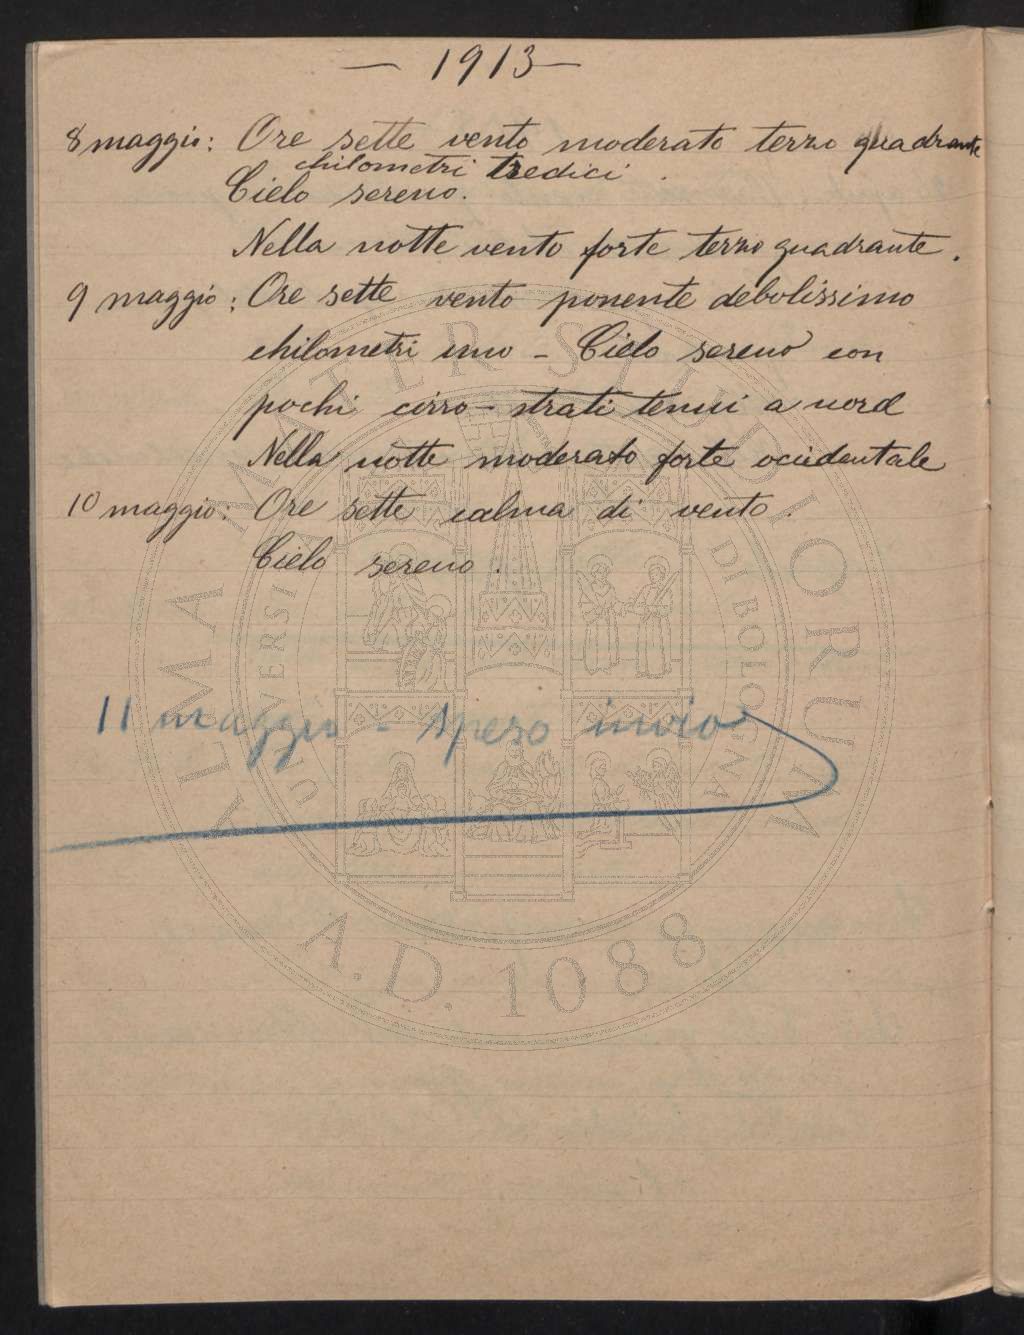 — 1913 —
8 maggio: Ore sette vento moderato terzo quadrante
chilometri tredici.
Cielo sereno.
Nella notte vento forte terzo quadrante.
9 maggio: Ore sette vento ponente debolissimo
chilometri uno - Cielo sereno con
pochi cirro-strati tenui a nord
Nella notte moderato forte occidentale
10 maggio: Ore sette calma di vento.
Cielo sereno.
11 maggio - invio
ALMA MATER STUDIORUM
UNIVERSI DI BOLOGNA
A.D. 1088